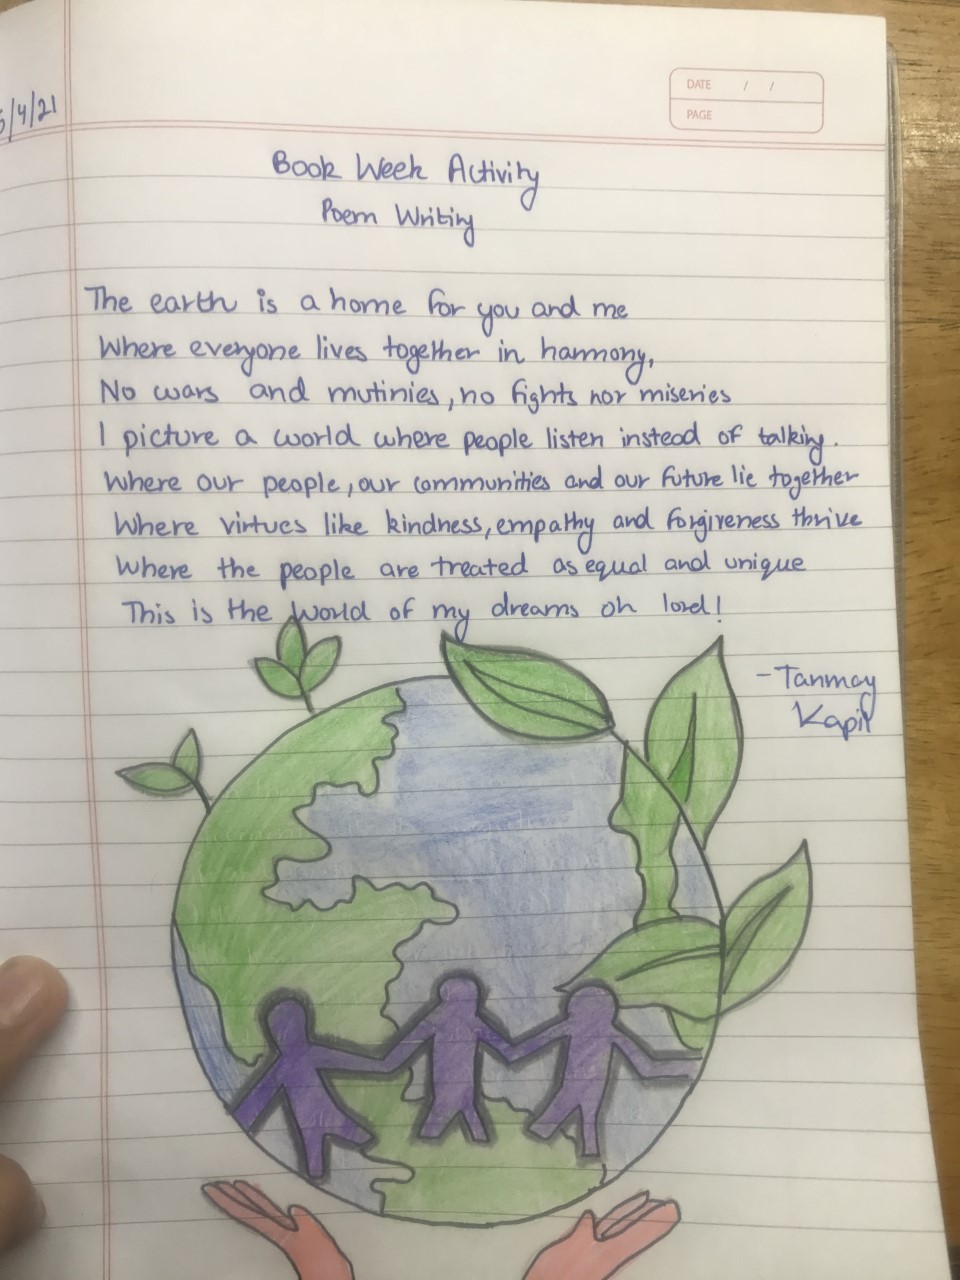 DATE / /
PAGE
5/4/21
Book Week Activity
Poem Writing
The earth is a home for you and me
Where everyone lives together in harmony,
No wars and mutinies, no fights nor miseries
I picture a world where people listen instead of talking.
Where our people, our communities and our future lie together
Where virtues like kindness, empathy and forgiveness thrive
Where the people are treated as equal and unique
This is the world of my dreams oh lord!
- Tanmay
Kapil